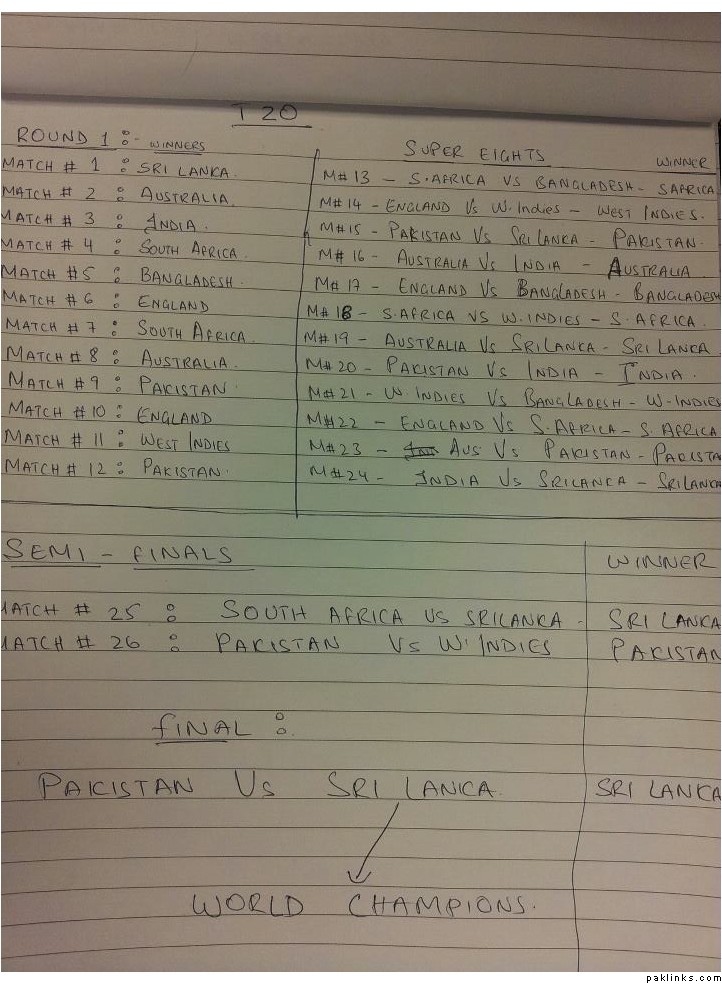 T 20
ROUND 1 :- WINNERS
MATCH # 1 : SRI LANKA.
MATCH # 2 : AUSTRALIA.
MATCH # 3 : INDIA.
MATCH # 4 : SOUTH AFRICA.
MATCH #5 : BANGLADESH.
MATCH # 6 : ENGLAND
MATCH # 7 : SOUTH AFRICA.
MATCH # 8 : AUSTRALIA.
MATCH # 9 : PAKISTAN.
MATCH # 10 : ENGLAND
MATCH # 11 : WEST INDIES
MATCH # 12 : PAKISTAN.
SUPER EIGHTS WINNER
M# 13 - S.AFRICA VS BANGLADESH - SAFRICA.
M# 14 - ENGLAND Vs W.Indies - WEST INDIES.
M#15 - PAKISTAN Vs SRI LANKA - PAKISTAN.
M# 16 - AUSTRALIA Vs INDIA - AUSTRALIA
M# 17 - ENGLAND Vs BANGLADESH - BANGLADESH
M# 18 - S.AFRICA VS W.INDIES - S.AFRICA.
M#19 - AUSTRALIA Vs SRILANKA - SRI LANKA
M#20 - PAKISTAN Vs INDIA - INDIA.
M#21 - W.INDIES Vs BANGLADESH - W-INDIES
M#22 - ENGLAND VS S.AFRICA - S.AFRICA
M#23 - AUS Vs PAKISTAN - PAKISTA
M#24 - INDIA Vs SRILANKA - SRILANKA
SEMI - FINALS WINNER
MATCH # 25 : SOUTH AFRICA VS SRILANKA - SRI LANKA
MATCH # 26 : PAKISTAN Vs W.INDIES PAKISTAN
fINAL :
PAKISTAN Vs SRI LANKA. SRI LANKA
WORLD CHAMPIONS.
paklinks.com